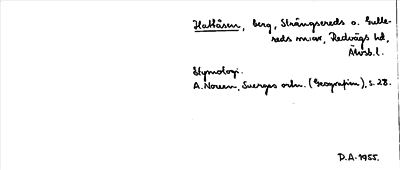 Hattåsen, berg, Strängsereds o. Gulle-
reds mi:or, Redvägs hd,
Älvsb. l.
Etymologi.
A. Noreen, Sveriges ortn. (Geografin), s. 28.
D.A. 1955.